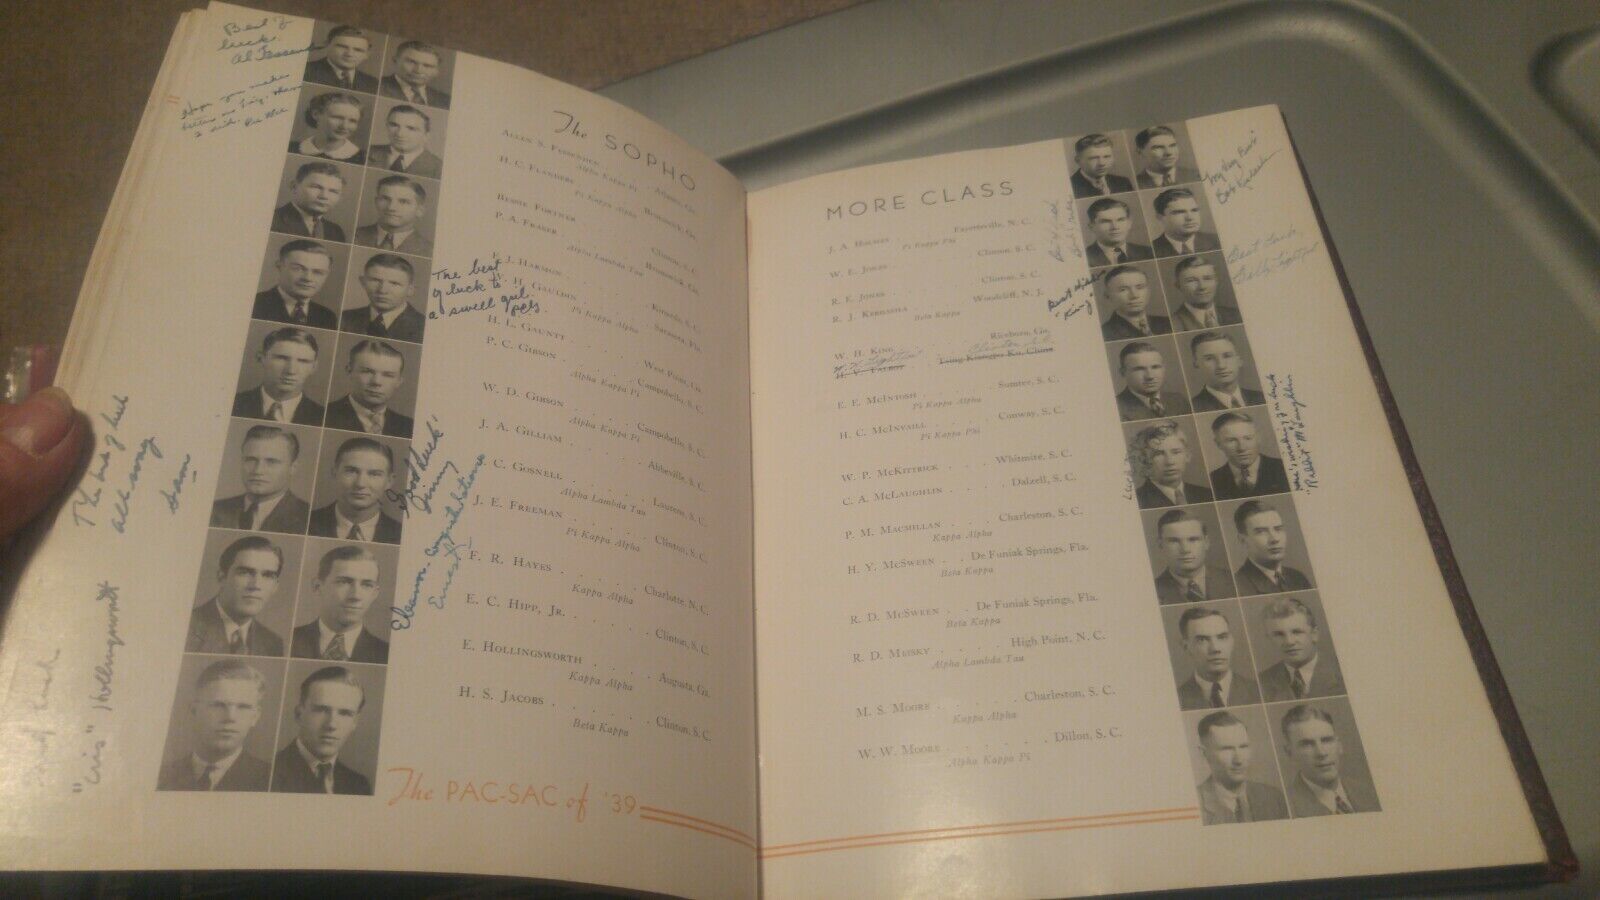 Best of
luck.
Al Fessend
Hope you make
The SOPHO
ALLEN S. FESSENDEN
Alpha Kappa Pi
Atlanta, Ga.
H. C. FLANDERS
Pi Kappa Alpha
Brunswick, Ga.
BESSIE FORTNER . . . Clinton, S. C.
P. A. FRASER . . . Brunswick, Ga.
Alpha Lambda Tau
The best
of luck to
a swell gul.
E. J. HARMON . . . Kinards, S. C.
W. H. GAULDIN . . . Sarasota, Fla.
Pi Kappa Alpha
H. L. GAUNTT . . . West Point, Ga.
P. C. GIBSON . . . Campobello, S. C.
Alpha Kappa Pi
W. D. GIBSON . . . Campobello, S. C.
Alpha Kappa Pi
J. A. GILLIAM . . . Abbeville, S. C.
C. GOSNELL . . . Laurens, S. C.
Alpha Lambda Tau
J. E. FREEMAN . . . . Clinton, S. C.
Pi Kappa Alpha
F. R. HAYES . . . . . Charlotte, N. C.
Kappa Alpha
E. C. HIPP, JR. . . . . . Clinton, S. C.
E. HOLLINGSWORTH . . . . Augusta, Ga.
Kappa Alpha
H. S. JACOBS . . . . . . Clinton, S. C.
Beta Kappa
"Good luck"
Jimmy
Eleanor - Congratulations
Ernest
The best of luck
always
Sam
"Cris" Hollingsworth
The PAC-SAC of '39
MORE CLASS
J. A. HOLMES . . . Fayetteville, N. C.
Pi Kappa Phi
W. E. JONES . . . Clinton, S. C.
R. E. JONES . . . Clinton, S. C.
R. J. KERDASHA . . . Woodcliff, N. J.
Beta Kappa
W. H. KING . . . Riceboro, Ga.
Clinton, S.C.
H. V. TALBOT . . . Tsing Kiangpu Ku, China
E. E. MCINTOSH . . . Sumter, S. C.
Pi Kappa Alpha
H. C. MCINVAILL . . . Conway, S. C.
Pi Kappa Phi
W. P. MCKITTRICK . . . Whitmire, S. C.
C. A. MCLAUGHLIN . . . Dalzell, S. C.
P. M. MACMILLAN . . . Charleston, S. C.
Kappa Alpha
H. Y. MCSWEEN . . De Funiak Springs, Fla.
Beta Kappa
R. D. MCSWEEN . . De Funiak Springs, Fla.
Beta Kappa
R. D. MEISKY . . . . High Point, N. C.
Alpha Lambda Tau
M. S. MOORE . . . . . Charleston, S. C.
Kappa Alpha
W. W. MOORE . . . . . . Dillon, S. C.
Alpha Kappa Pi
"My Very Best"
Best Wishes
"King"
Best Luck,
Billy
Here's wishing you luck
"Rabbit" McLaughlin